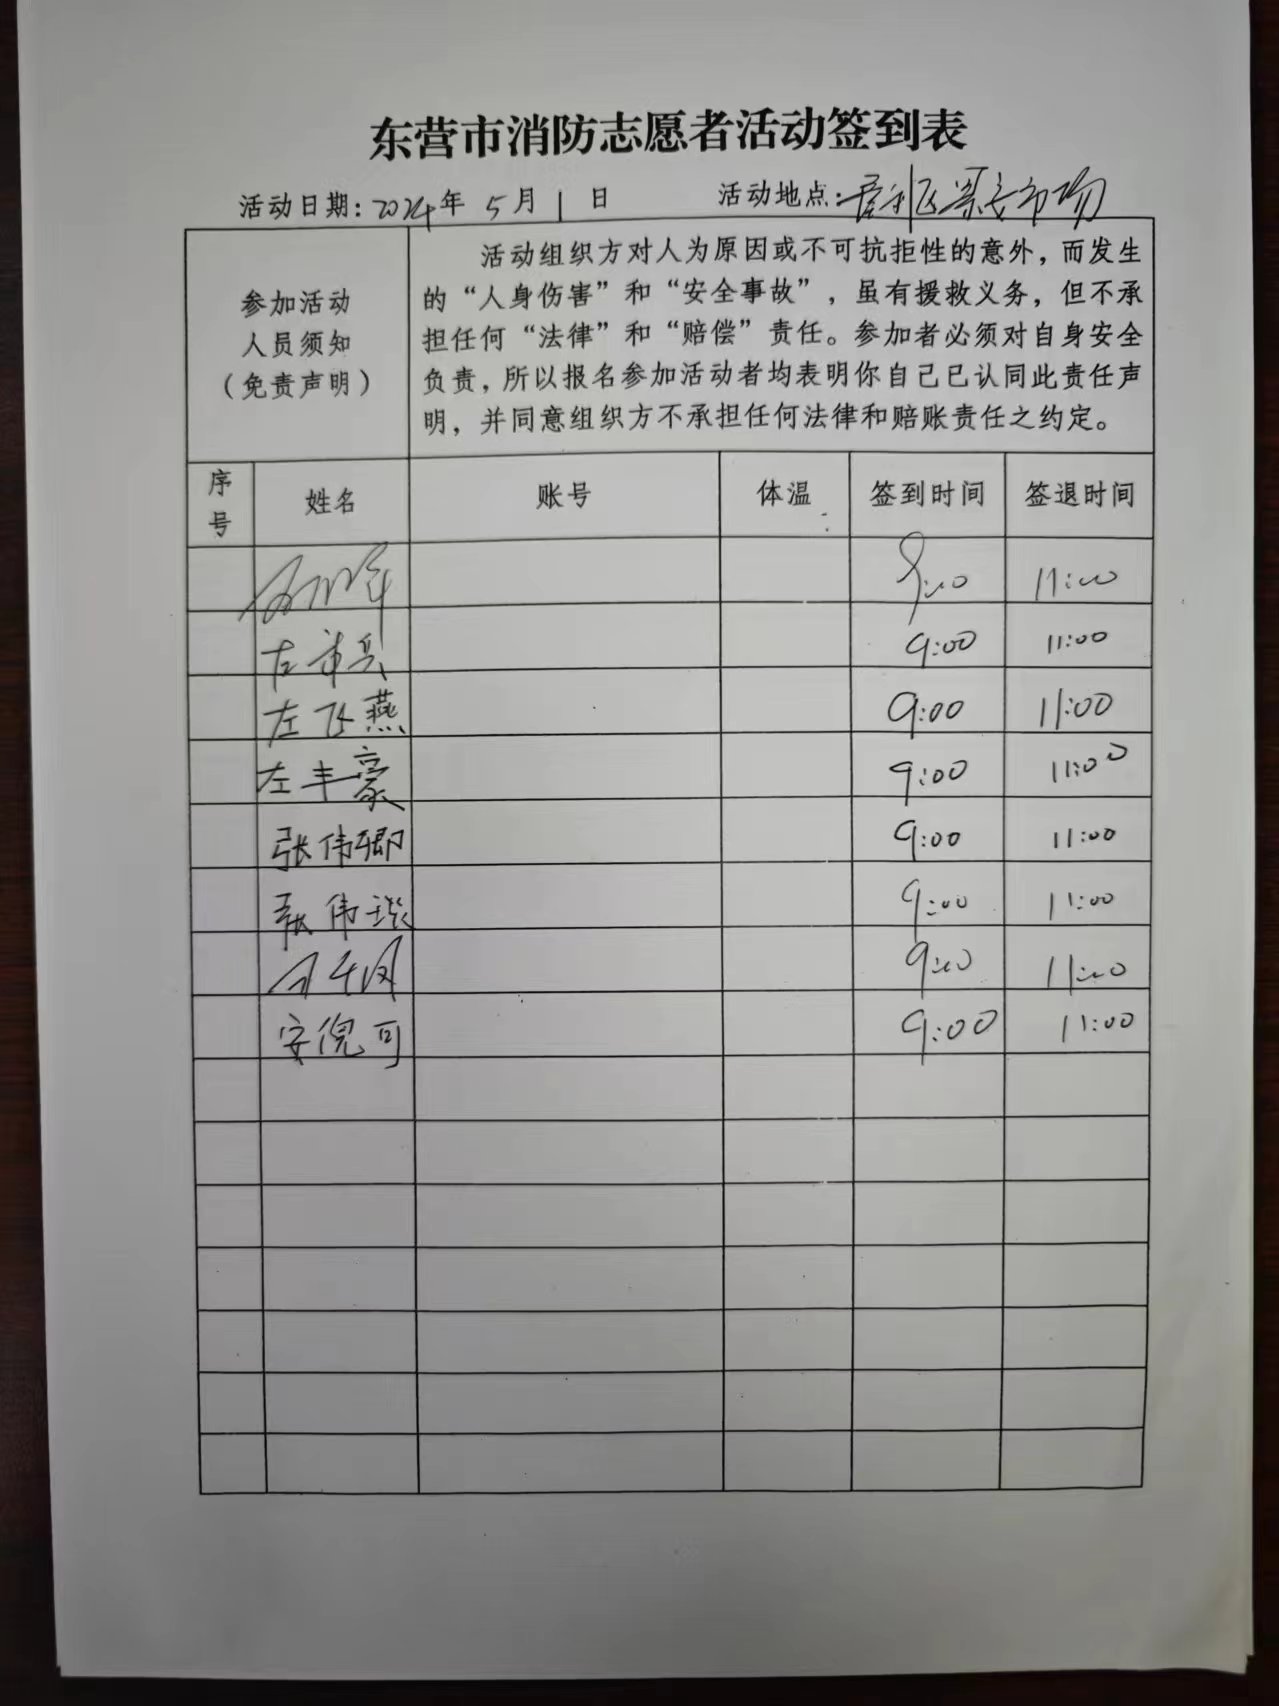 东营市消防志愿者活动签到表
活动日期：2024年 5月 1日 活动地点：垦利区 市场
参加活动
人员须知
（免责声明）
活动组织方对人为原因或不可抗拒性的意外，而发生
的“人身伤害”和“安全事故”，虽有援救义务，但不承
担任何“法律”和“赔偿”责任。参加者必须对自身安全
负责，所以报名参加活动者均表明你自己已认同此责任声
明，并同意组织方不承担任何法律和赔账责任之约定。
序号 姓名 账号 体温 签到时间 签退时间
9:00 11:00
左 兵 9:00 11:00
左飞燕 9:00 11:00
左丰豪 9:00 11:00
张伟卿 9:00 11:00
张伟 9:00 11:00
9:00 11:00
安倪可 9:00 11:00